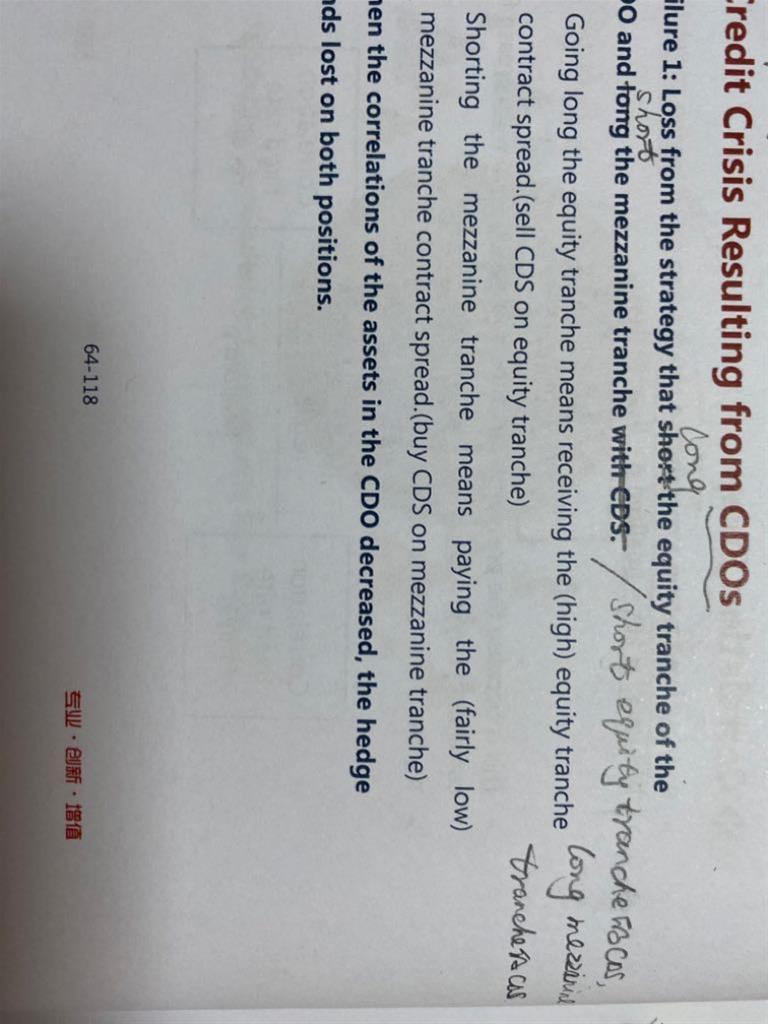 redit Crisis Resulting from CDOs
long
ilure 1: Loss from the strategy that short the equity tranche of the
short
DO and long the mezzanine tranche with CDS. / short equity tranche的CDS,
Going long the equity tranche means receiving the (high) equity tranche long
contract spread.(sell CDS on equity tranche) tranche的CDS
Shorting the mezzanine tranche means paying the (fairly low)
mezzanine tranche contract spread.(buy CDS on mezzanine tranche)
en the correlations of the assets in the CDO decreased, the hedge
ds lost on both positions.
64-118
专业·创新·增值